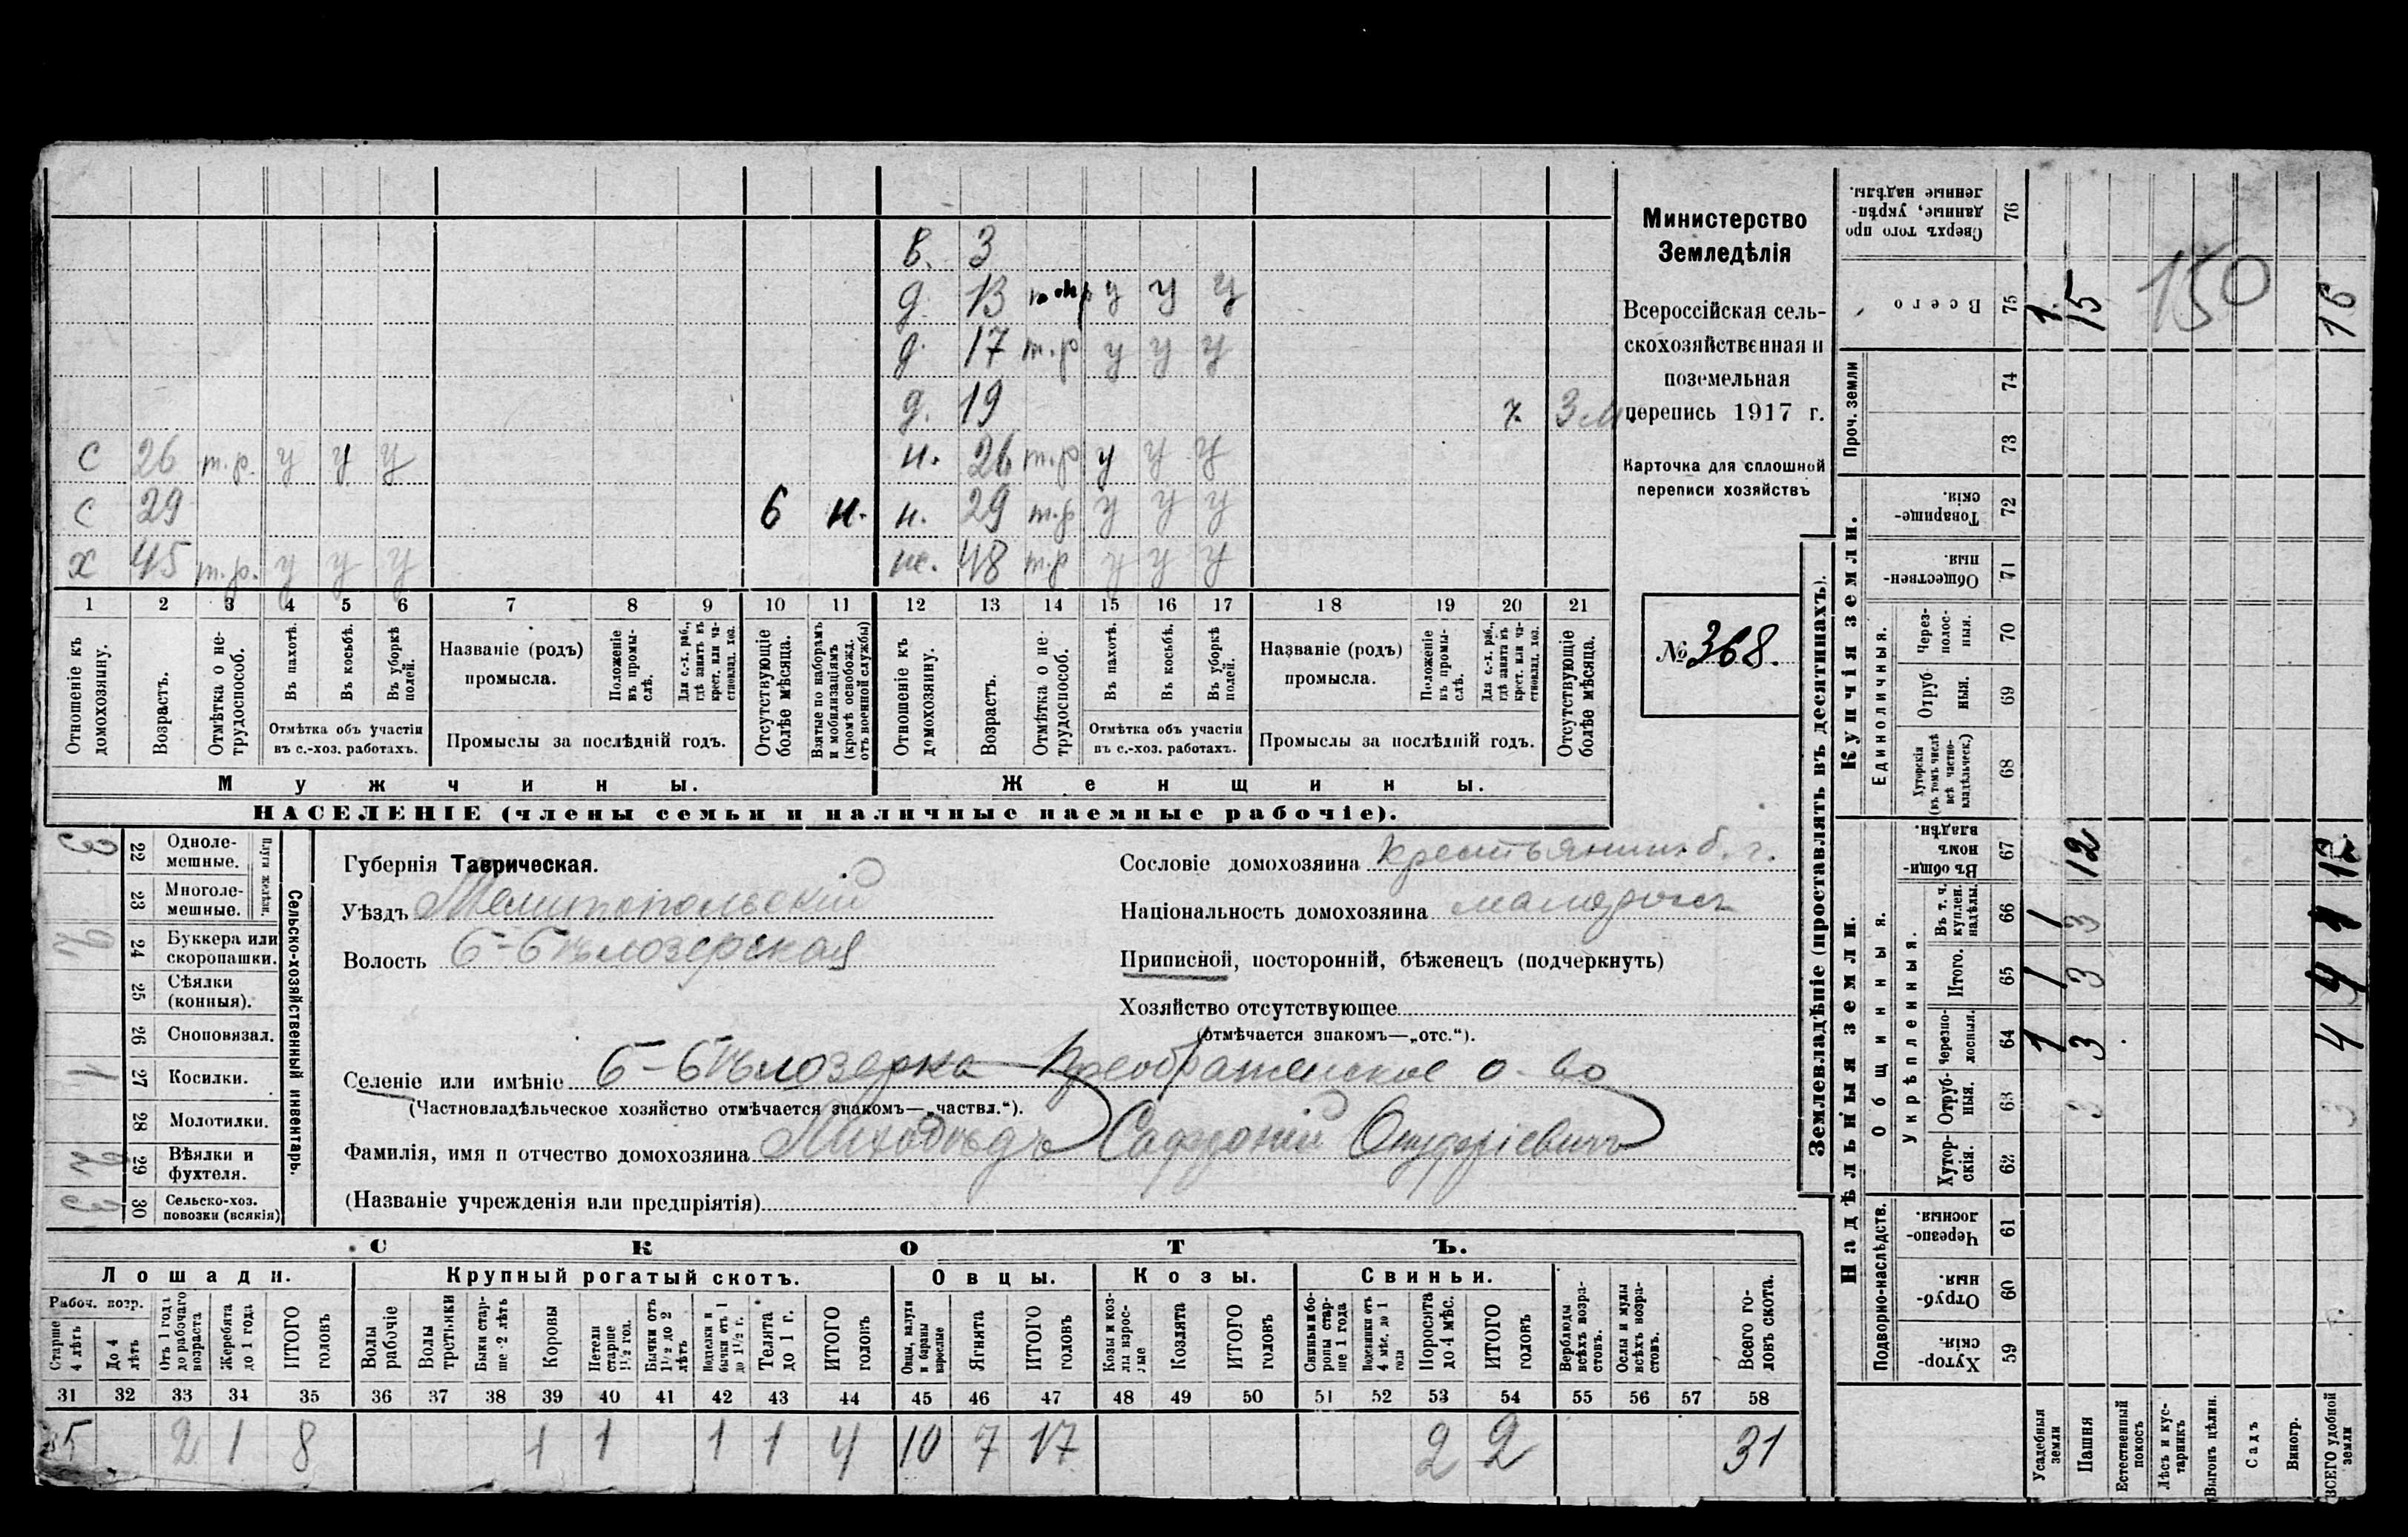 в. 3
д. 13 у у у
д. 17 т.р у у у
д. 19 7. 3 м
с 26 т.р. у у у н. 26 т.р у у у
с 29 6 н. н. 29 т.р у у у
х 45 т.р. у у у ж. 48 т.р у у у
1 2 3 4 5 6 7 8 9 10 11 12 13 14 15 16 17 18 19 20 21
Отношеніе къ домохозяину.
Возрастъ.
Отмѣтка о не-трудоспособ.
Въ пахотѣ.
Въ косьбѣ.
Въ уборкѣ полей.
Отмѣтка объ участіи въ с.-хоз. работахъ.
Названіе (родъ) промысла.
Положеніе въ промы-слѣ.
Для с.-х. раб., гдѣ занятъ въ крест. или ча-стновлад. хоз.
Промыслы за послѣдній годъ.
Отсутствующіе болѣе мѣсяца.
Взятые по наборамъ и мобилизаціямъ (кромѣ освобожд. отъ военной службы)
Отношеніе къ домохозяину.
Возрастъ.
Отмѣтка о не-трудоспособ.
Въ пахотѣ.
Въ косьбѣ.
Въ уборкѣ полей.
Отмѣтка объ участіи въ с.-хоз. работахъ.
Названіе (родъ) промысла.
Положеніе въ промы-слѣ.
Для с.-х. раб., гдѣ занята въ крест. или ча-стновлад. хоз.
Промыслы за послѣдній годъ.
Отсутствующіе болѣе мѣсяца.
Мужчины. Женщины.
НАСЕЛЕНІЕ (члены семьи и наличные наемные рабочіе).
Министерство
Земледѣлія
Всероссійская сель-
скохозяйственная и
поземельная
перепись 1917 г.
Карточка для сплошной
переписи хозяйствъ
№ 368.
Сельско-хозяйственный инвентарь.
Плуги желѣзн.
3 22 Одноле-мешные.
23 Многоле-мешные.
24 Буккера или скоропашки.
25 Сѣялки (конныя).
26 Сноповязал.
1 27 Косилки.
28 Молотилки.
29 Вѣялки и фухтеля.
3 30 Сельско-хоз. повозки (всякія)
Губернія Таврическая.
Уѣздъ Мелитопольскій
Волость Б-Бѣлозерская
Сословіе домохозяина крестьянин. б. г.
Національность домохозяина малоросъ
Приписной, посторонній, бѣженецъ (подчеркнуть)
Хозяйство отсутствующее
(отмѣчается знакомъ—„отс.“).
Селеніе или имѣніе Б-Бѣлозерка Преображенское о-во
(Частновладѣльческое хозяйство отмѣчается знакомъ—„частвл.“).
Фамилія, имя и отчество домохозяина Лиходѣдъ Сафроній Онуфріевичъ
(Названіе учрежденія или предпріятія)
СКОТЪ.
Лошади. Крупный рогатый скотъ. Овцы. Козы. Свиньи.
Рабоч. возр.
Старше 4 лѣтъ
До 4 лѣтъ
Отъ 1 года до рабочаго возраста
Жеребята до 1 года
ИТОГО головъ
Волы рабочіе
Волы третьяки
Быки стар-ше 2 лѣтъ
Коровы
Нетели старше 1½ год.
Бычки отъ 1½ до 2 лѣтъ
Подтелки и бычки отъ 1 до 1½ г.
Телята до 1 г.
ИТОГО головъ
Овцы, валухи и бараны взрослые
Ягнята
ИТОГО головъ
Козы и коз-лы взрос-лые
Козлята
ИТОГО головъ
Свиньи и бо-ровы стар-ше 1 года
Подсвинки отъ 4 мѣс. до 1 года
Поросята до 4 мѣс.
ИТОГО головъ
Верблюды всѣхъ возра-стовъ.
Ослы и мулы всѣхъ возра-стовъ.
Всего го-ловъ скота.
31 32 33 34 35 36 37 38 39 40 41 42 43 44 45 46 47 48 49 50 51 52 53 54 55 56 57 58
5 2 1 8 1 1 1 1 4 10 7 17 2 2 31
Землевладѣніе (проставлять въ десятинахъ).
Надѣльныя земли. Купчія земли. Проч. земли
Подворно-наслѣдств.
Общинныя.
Укрѣпленныя.
Единоличныя.
Сверхъ того про-данные, укрѣп-ленные надѣлы. 76
Всего 75 1. 15 150 16
74
73
Товарище-скія. 72
Обществен-ныя. 71
Через-полос-ныя. 70
Отруб-ныя. 69
Хуторскія (въ томъ числѣ всѣ частно-владѣльческ.) 68
Въ общи-номъ владѣн. 67 12 12
Въ т. ч. куплен. надѣлы. 66 1 3
Итого. 65 1 3 4
Черезпо-лосныя. 64 1 3 4
Отруб-ныя. 63 3 3
Хутор-скія. 62
Черезпо-лосныя. 61
Отруб-ныя. 60
Хутор-скія. 59
Усадебныя земли
Пашня
Естественный покосъ
Лѣсъ и кус-тарникъ
Выгонъ цѣлин.
Садъ
Виногр.
ВСЕГО удобной земли